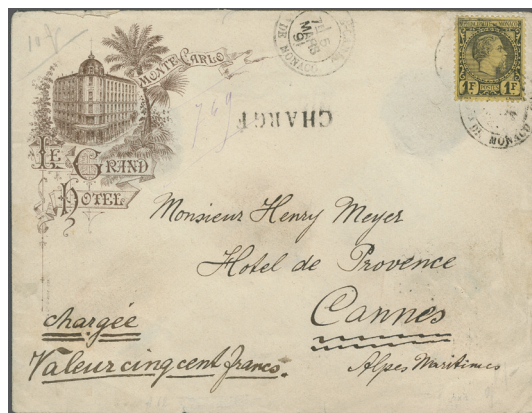 MONTE CARLO
LE GRAND HOTEL
MARS 91
DE MONACO
1F POSTES 1F
DE MONACO
769
CHARGÉ
Monsieur Henry Meyer
Hotel de Provence
Cannes
Alpes Maritimes
chargée
Valeur cinq cent francs.